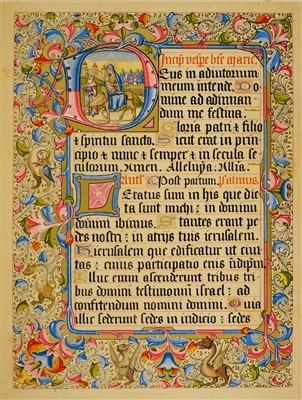 Incip vespe bte marie.
Deus in adiutorium
meum intende. Do
mine ad adiuuan
dum me festina.
Gloria patri & filio
& spiritui sancto. Sicut erat in prin
cipio & nunc & semper & in secula se
culorum. Amen. Alleluya. Allia.
Antiff Post partum. psalmus.
Letatus sum in his que dic
ta sunt michi: in domum
domini ibimus. Stantes erant pe
des nostri: in atrijs tuis ierusalem.
Hierusalem que edificatur ut ciui
tas: cuius participatio eius
Illuc enim ascenderunt tribus tri
bus domini testimonium israel: ad
confitendum nomini domini. Quia
illic sederunt sedes in iudicio: sedes